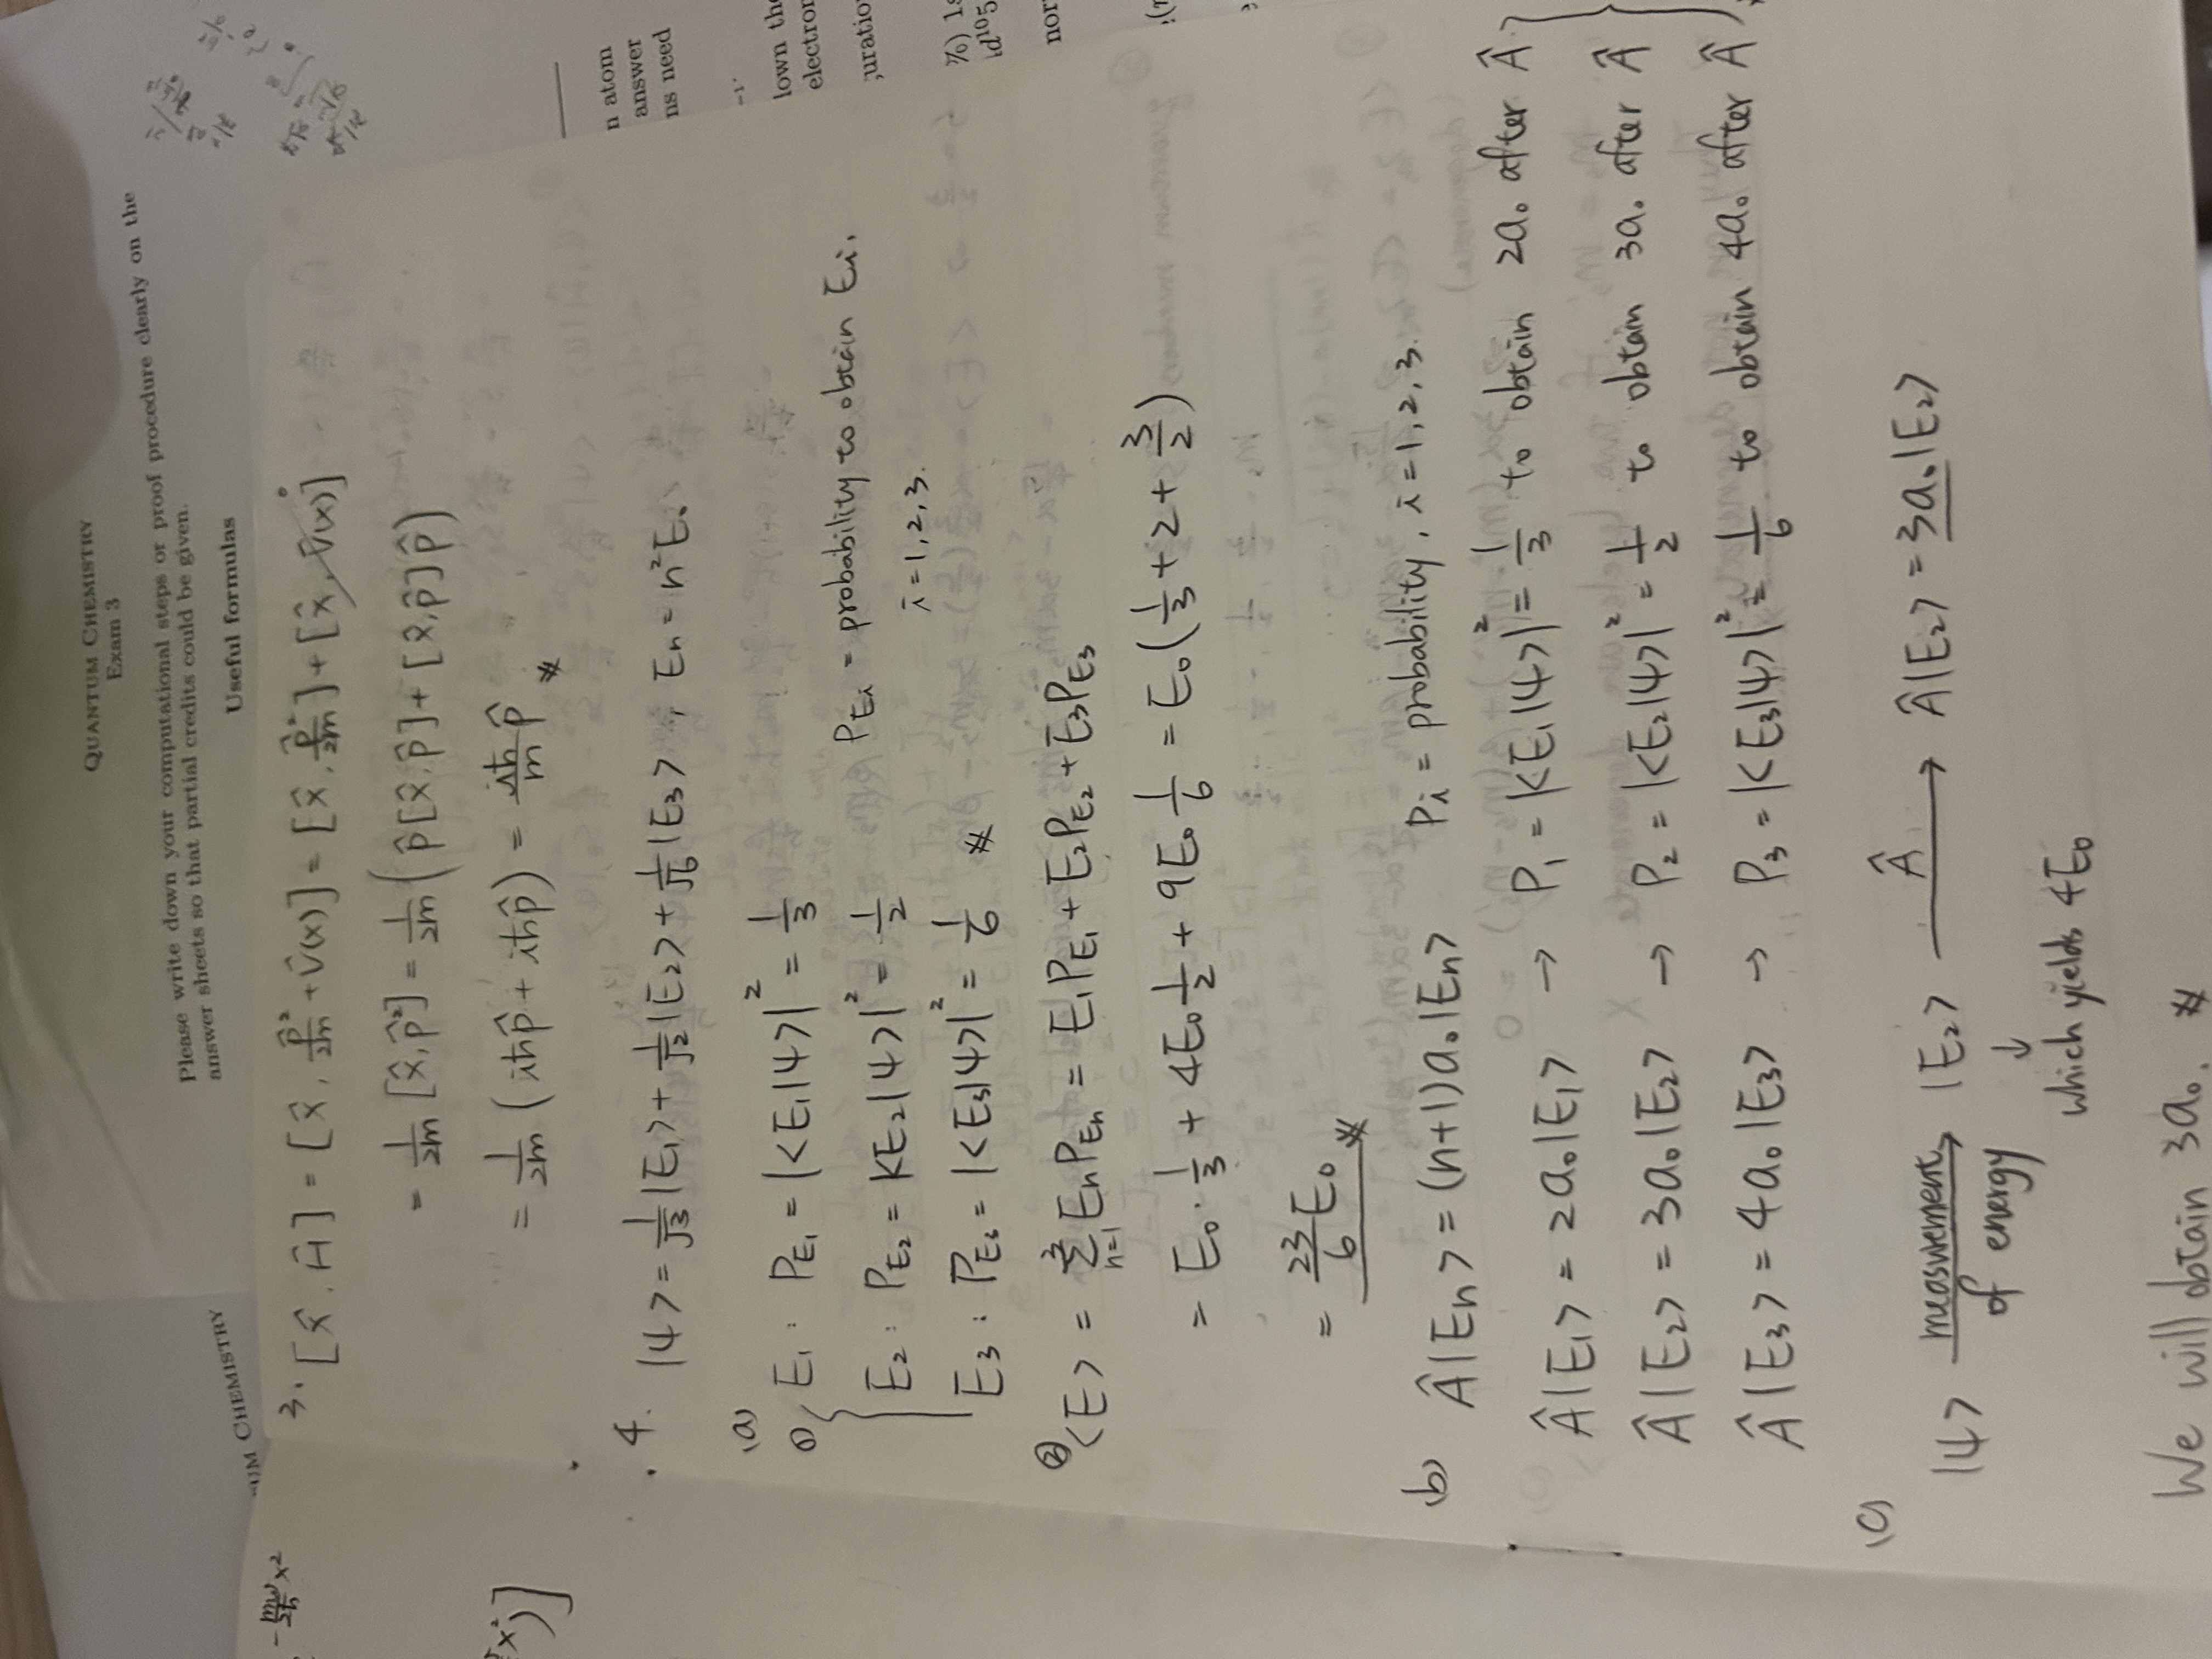 QUANTUM CHEMISTRY
Exam 3
Please write down your computational steps or proof procedure clearly on the
answer sheets so that partial credits could be given.
Useful formulas
CHEMISTRY
3. [x̂, Ĥ] = [x̂, p̂²/2m + V̂(x)] = [x̂, p̂²/2m] + [x̂, V̂(x)] 0
= 1/2m [x̂, p̂²] = 1/2m (p̂[x̂, p̂] + [x̂, p̂]p̂)
= 1/2m (iħp̂ + iħp̂) = iħ/m p̂ #
4. |ψ> = 1/√3 |E₁> + 1/√2 |E₂> + 1/√6 |E₃>, Eₙ = n²E₀
(a)
① E₁ : P_E₁ = |<E₁|ψ>|² = 1/3
P_Ei = probability to obtain Ei,
E₂ : P_E₂ = |<E₂|ψ>|² = 1/2
i = 1, 2, 3.
E₃ : P_E₃ = |<E₃|ψ>|² = 1/6 #
② <E> = Σₙ₌₁³ EₙP_Eₙ = E₁P_E₁ + E₂P_E₂ + E₃P_E₃
= E₀ · 1/3 + 4E₀ 1/2 + 9E₀ 1/6 = E₀ (1/3 + 2 + 3/2)
= 23/6 E₀ #
(b) Â|Eₙ> = (n+1)a₀|Eₙ> Pi = probability, i = 1, 2, 3.
Â|E₁> = 2a₀|E₁> → P₁ = |<E₁|ψ>|² = 1/3 to obtain 2a₀ after Â
Â|E₂> = 3a₀|E₂> → P₂ = |<E₂|ψ>|² = 1/2 to obtain 3a₀ after Â
Â|E₃> = 4a₀|E₃> → P₃ = |<E₃|ψ>|² = 1/6 to obtain 4a₀ after Â
(c)
|ψ> measurement of energy → |E₂> Â → Â|E₂> = 3a₀|E₂>
↓
which yields 4E₀
We will obtain 3a₀. #
n atom
answer
ns need
lown the
electron